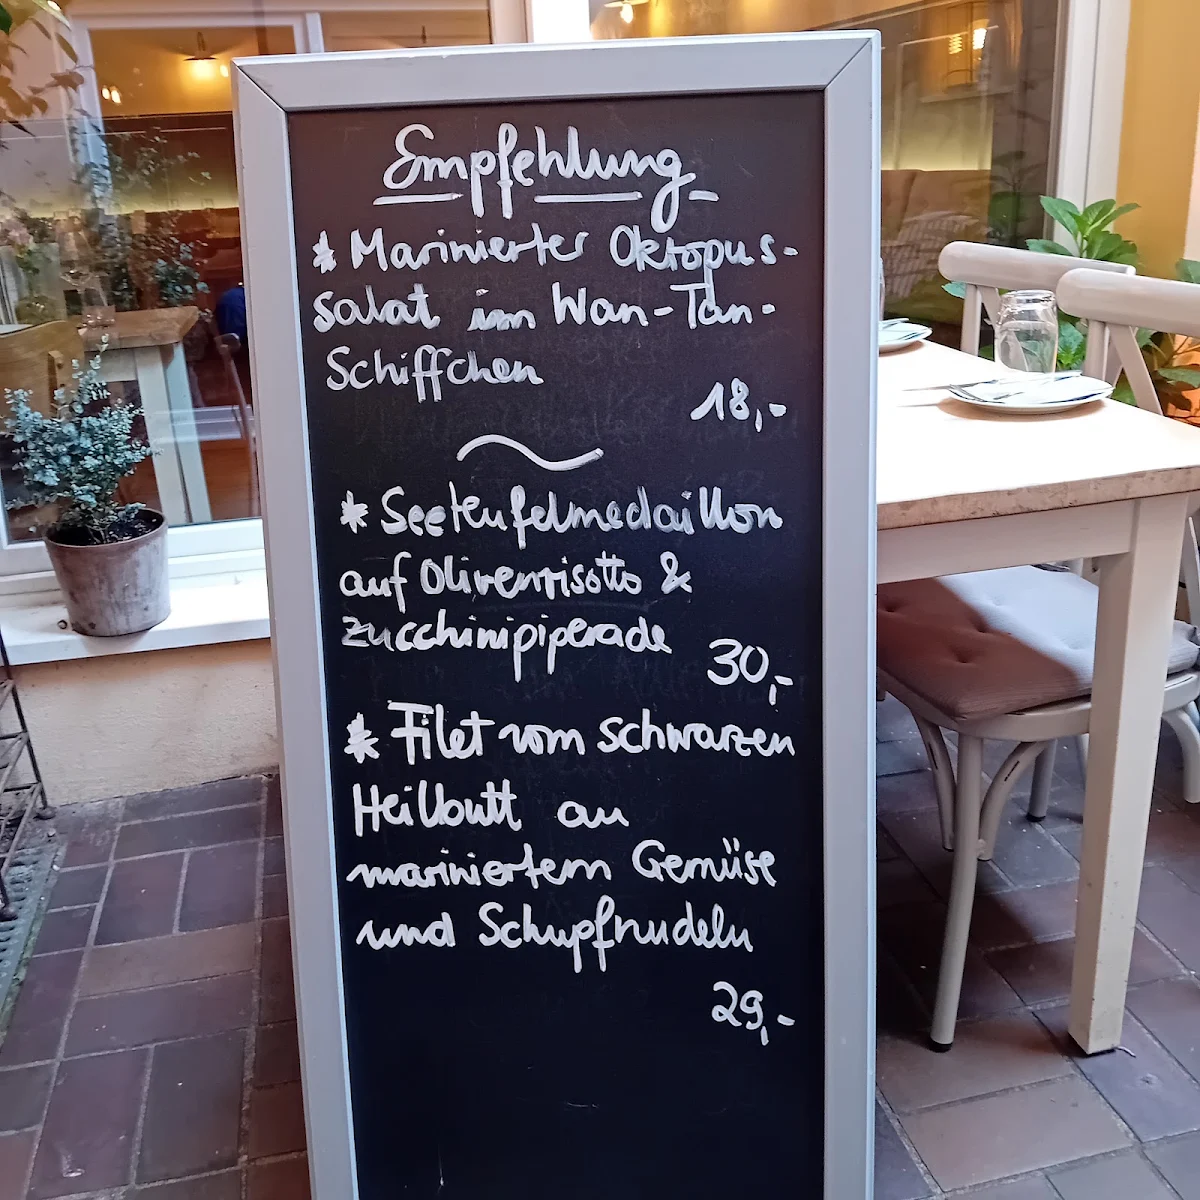 Empfehlung
* Marinierter Oktopus-
salat im Wan-Tan-
Schiffchen
18,-
* Seeteufelmedaillon
auf Olivenrisotto &
Zucchinipiperade
30,-
* Filet vom schwarzen
Heilbutt an
mariniertem Gemüse
und Schupfnudeln
29,-